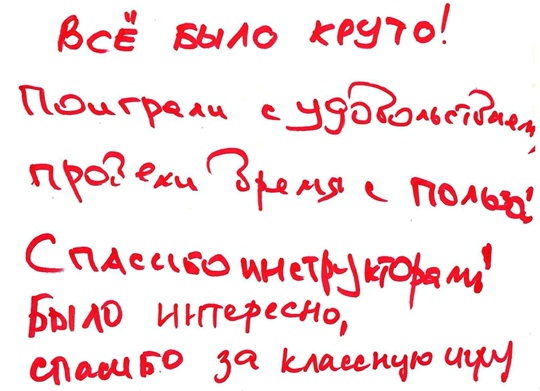 ВСЁ БЫЛО КРУТО!
Поиграли с удовольствием,
провели время с пользой!
Спасибо инструкторам!
Было интересно,
спасибо за классную игру